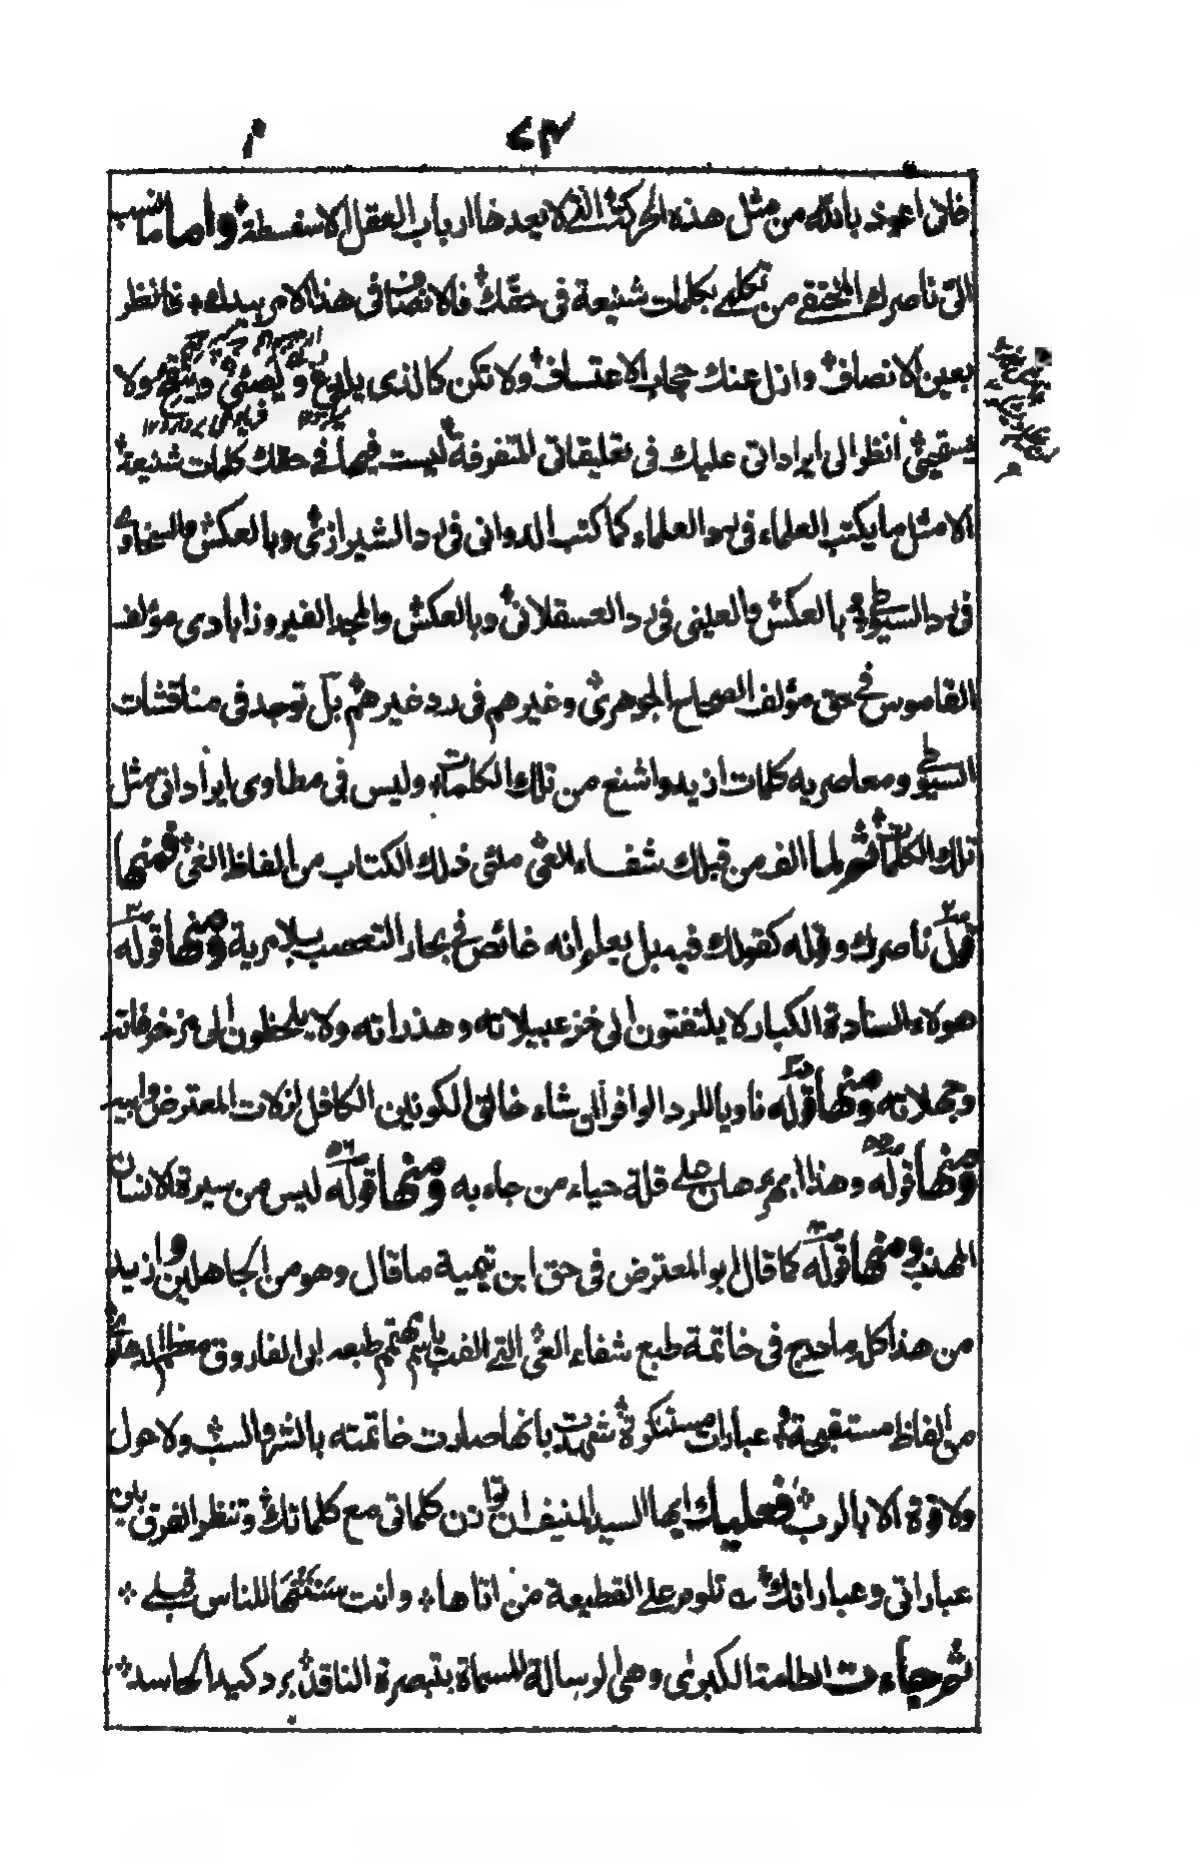 ۲۴
فانی اعوذ بالله من مثل هذه الحركة التي لا يعدها ارباب العقل الا سفسطة واما ما نسب
الى ناصرك المختفي من تكلمي بكلمات شنيعة في حقك فالانصاف في هذا الامر بيدك فانظر
بعين الانصاف وازل عنك حجاب الاعتساف ولا تكن كالذى يلدغ و يصئى ولا
انظر الى ايراداتى عليك فى تعليقاتى المتفرقة ليست فيها فى حقك كلمات شنيعة
الا مثل ما يكتب العلماء فى رد العلماء كما كتب الدوانى فى رد الشيرازى وبالعكس والسخاوى
فى رد السيوطى وبالعكس والعينى فى رد العسقلانى وبالعكس والمجد الفيروزابادى مؤلف
القاموس فى حق مؤلف الصحاح الجوهرى وغيرهم فى رد غيرهم بل توجد فى مناقشات
السيوطى ومعاصريه كلمات ازيد واشنع من تلك الكلمات وليس فى مطاوى ايراداتى مثل
تلك الكلمات ثم لما الف من قبلك شفاء العى ملئ ذلك الكتاب من الفاظ الغى فمنها
قول ناصرك وقوله كقولك فيه بل يعلم انه خائض فى بحار التعصب بلا مرية ومنها قوله
هولاء السادة الكبار لا يلتفتون الى خزعبيلاته وهذراته ولا يلحظون الى مزخرفاته
وجهلاته ومنها قوله ناويا للرد الوافر ان شاء خالق الكونين الكافل لزلات المعترض وابيه
ومنها قوله وهذا ابرهر هان على قلة حياء من جاء به ومنها قوله ليس من سيرة الانسان
المهذب ومنها قوله كما قال ابو المعترض فى حق ابن تيمية ما قال وهو من الجاهلين وازيد
من هذا كل ما ادرج فى خاتمة طبع شفاء العى التى الفت باسم مهتم طبعه ابى الفاروق معظم الدهلوى
من الفاظ مستقبحة وعبارات مستنكرة شهدت بانها صارت خاتمته بالشر والسب ولا حول
ولا قوة الا بالرب فعليك ايها السيد المنيف ان تزن كلماتى مع كلماتك وتنظر الفرق بين
عباراتى وعباراتك تلوم على القطيعة من اتاها وانت سننتها للناس قبلى
ثم جاءت الطامة الكبرى وهى الرسالة المسماة بتبصرة الناقد برد كيد الحاسد